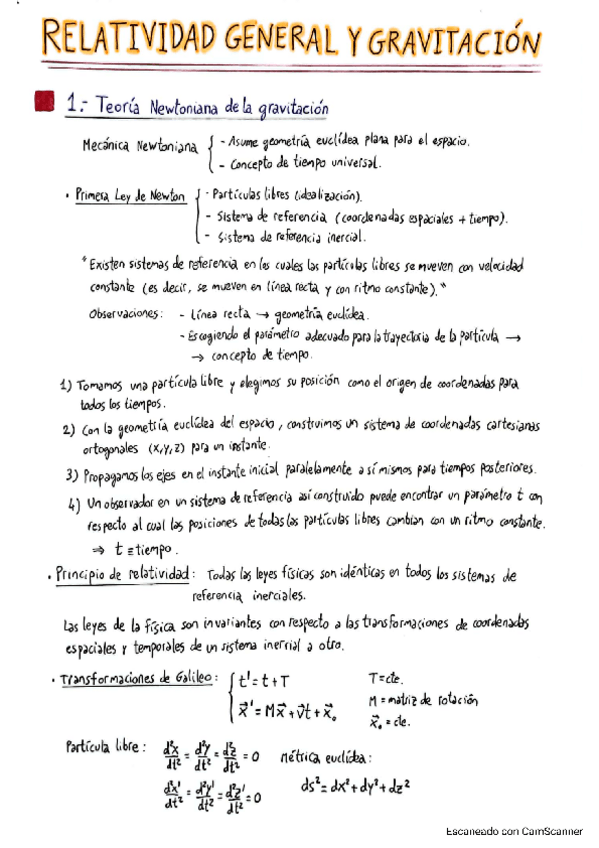 RELATIVIDAD GENERAL Y GRAVITACIÓN
1.- Teoría Newtoniana de la gravitación
Mecánica Newtoniana { - Asume geometría euclídea plana para el espacio.
- Concepto de tiempo universal.
· Primera Ley de Newton { - Partículas libres (idealización).
- Sistema de referencia (coordenadas espaciales + tiempo).
- Sistema de referencia inercial.
"Existen sistemas de referencia en los cuales las partículas libres se mueven con velocidad
constante (es decir, se mueven en línea recta y con ritmo constante)."
Observaciones: - Línea recta → geometría euclídea.
- Escogiendo el parámetro adecuado para la trayectoria de la partícula →
→ concepto de tiempo.
1) Tomamos una partícula libre y elegimos su posición como el origen de coordenadas para
todos los tiempos.
2) Con la geometría euclídea del espacio, construimos un sistema de coordenadas cartesianas
ortogonales (x,y,z) para un instante.
3) Propagamos los ejes en el instante inicial paralelamente a sí mismos para tiempos posteriores.
4) Un observador en un sistema de referencia así construido puede encontrar un parámetro t con
respecto al cual las posiciones de todas las partículas libres cambian con un ritmo constante.
⇒ t ≡ tiempo.
· Principio de relatividad: Todas las leyes físicas son idénticas en todos los sistemas de
referencia inerciales.
Las leyes de la física son invariantes con respecto a las transformaciones de coordenadas
espaciales y temporales de un sistema inercial a otro.
· Transformaciones de Galileo: { t' = t + T T = cte.
x⃗' = Mx⃗ + v⃗t + x⃗₀ M = matriz de rotación
x⃗₀ = cte.
Partícula libre: d²x/dt² = d²y/dt² = d²z/dt² = 0 Métrica euclídea:
d²x'/dt² = d²y'/dt² = d²z'/dt² = 0 ds² = dx² + dy² + dz²
Escaneado con CamScanner